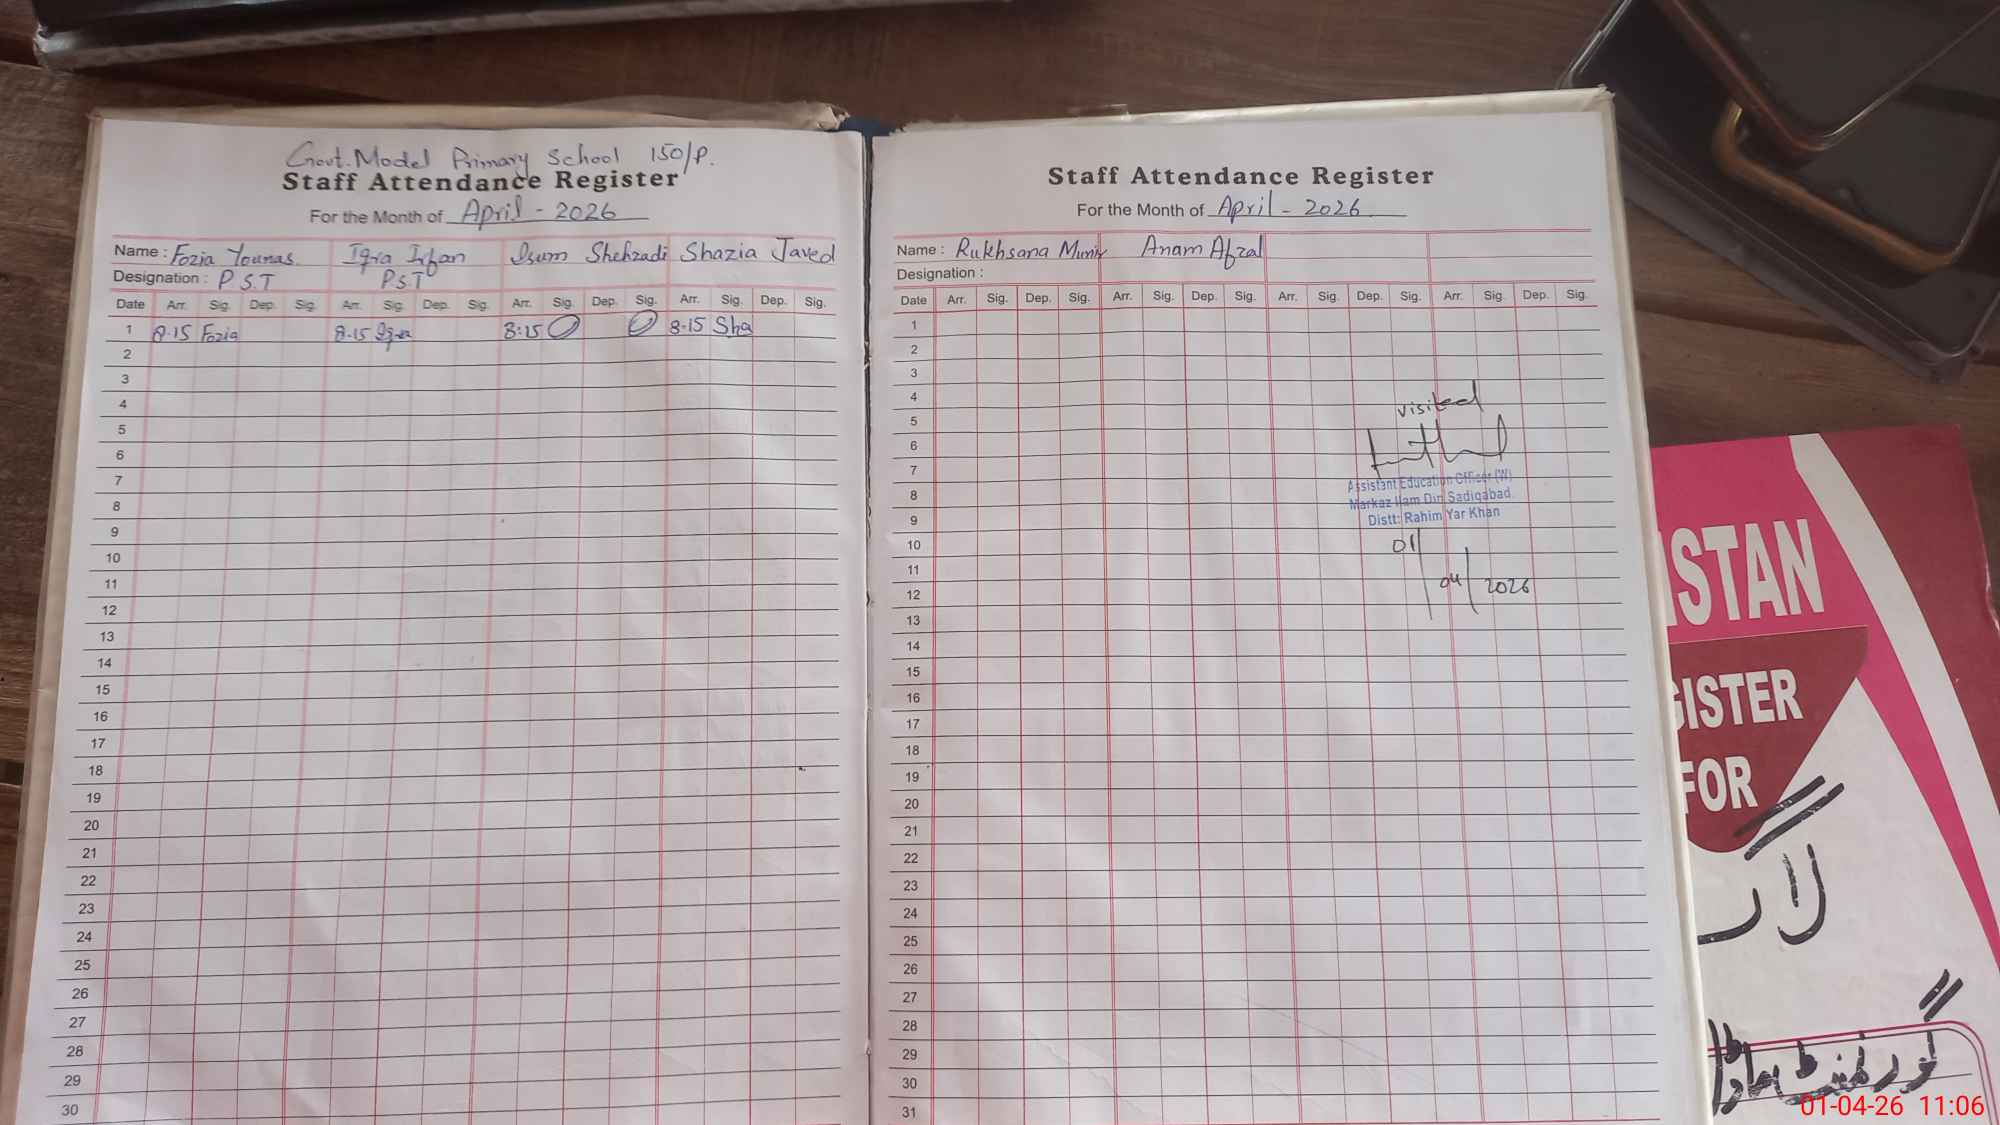 Govt. Model Primary School 150/P.
Staff Attendance Register
For the Month of April - 2026
Name : Fozia Younas. Iqra Irfan Isum Shehzadi Shazia Javed
Designation : P.S.T P.S.T
Date Arr. Sig. Dep. Sig. Arr. Sig. Dep. Sig. Arr. Sig. Dep. Sig. Arr. Sig. Dep. Sig.
1 8-15 Fozia 8-15 Iqra 8:15 8-15 Sha
2
3
4
5
6
7
8
9
10
11
12
13
14
15
16
17
18
19
20
21
22
23
24
25
26
27
28
29
30
Staff Attendance Register
For the Month of April - 2026
Name : Rukhsana Munir Anam Afzal
Designation :
Date Arr. Sig. Dep. Sig. Arr. Sig. Dep. Sig. Arr. Sig. Dep. Sig. Arr. Sig. Dep. Sig.
1
2
3
4
5
6
7
8
9
10
11
12
13
14
15
16
17
18
19
20
21
22
23
24
25
26
27
28
29
30
31
visited
Assistant Education Officer (W)
Markaz Ilam Din Sadiqabad
Distt: Rahim Yar Khan
01/04/2026
ISTAN
GISTER
FOR
لاگ
گورنمنٹ ماڈل
01-04-26 11:06